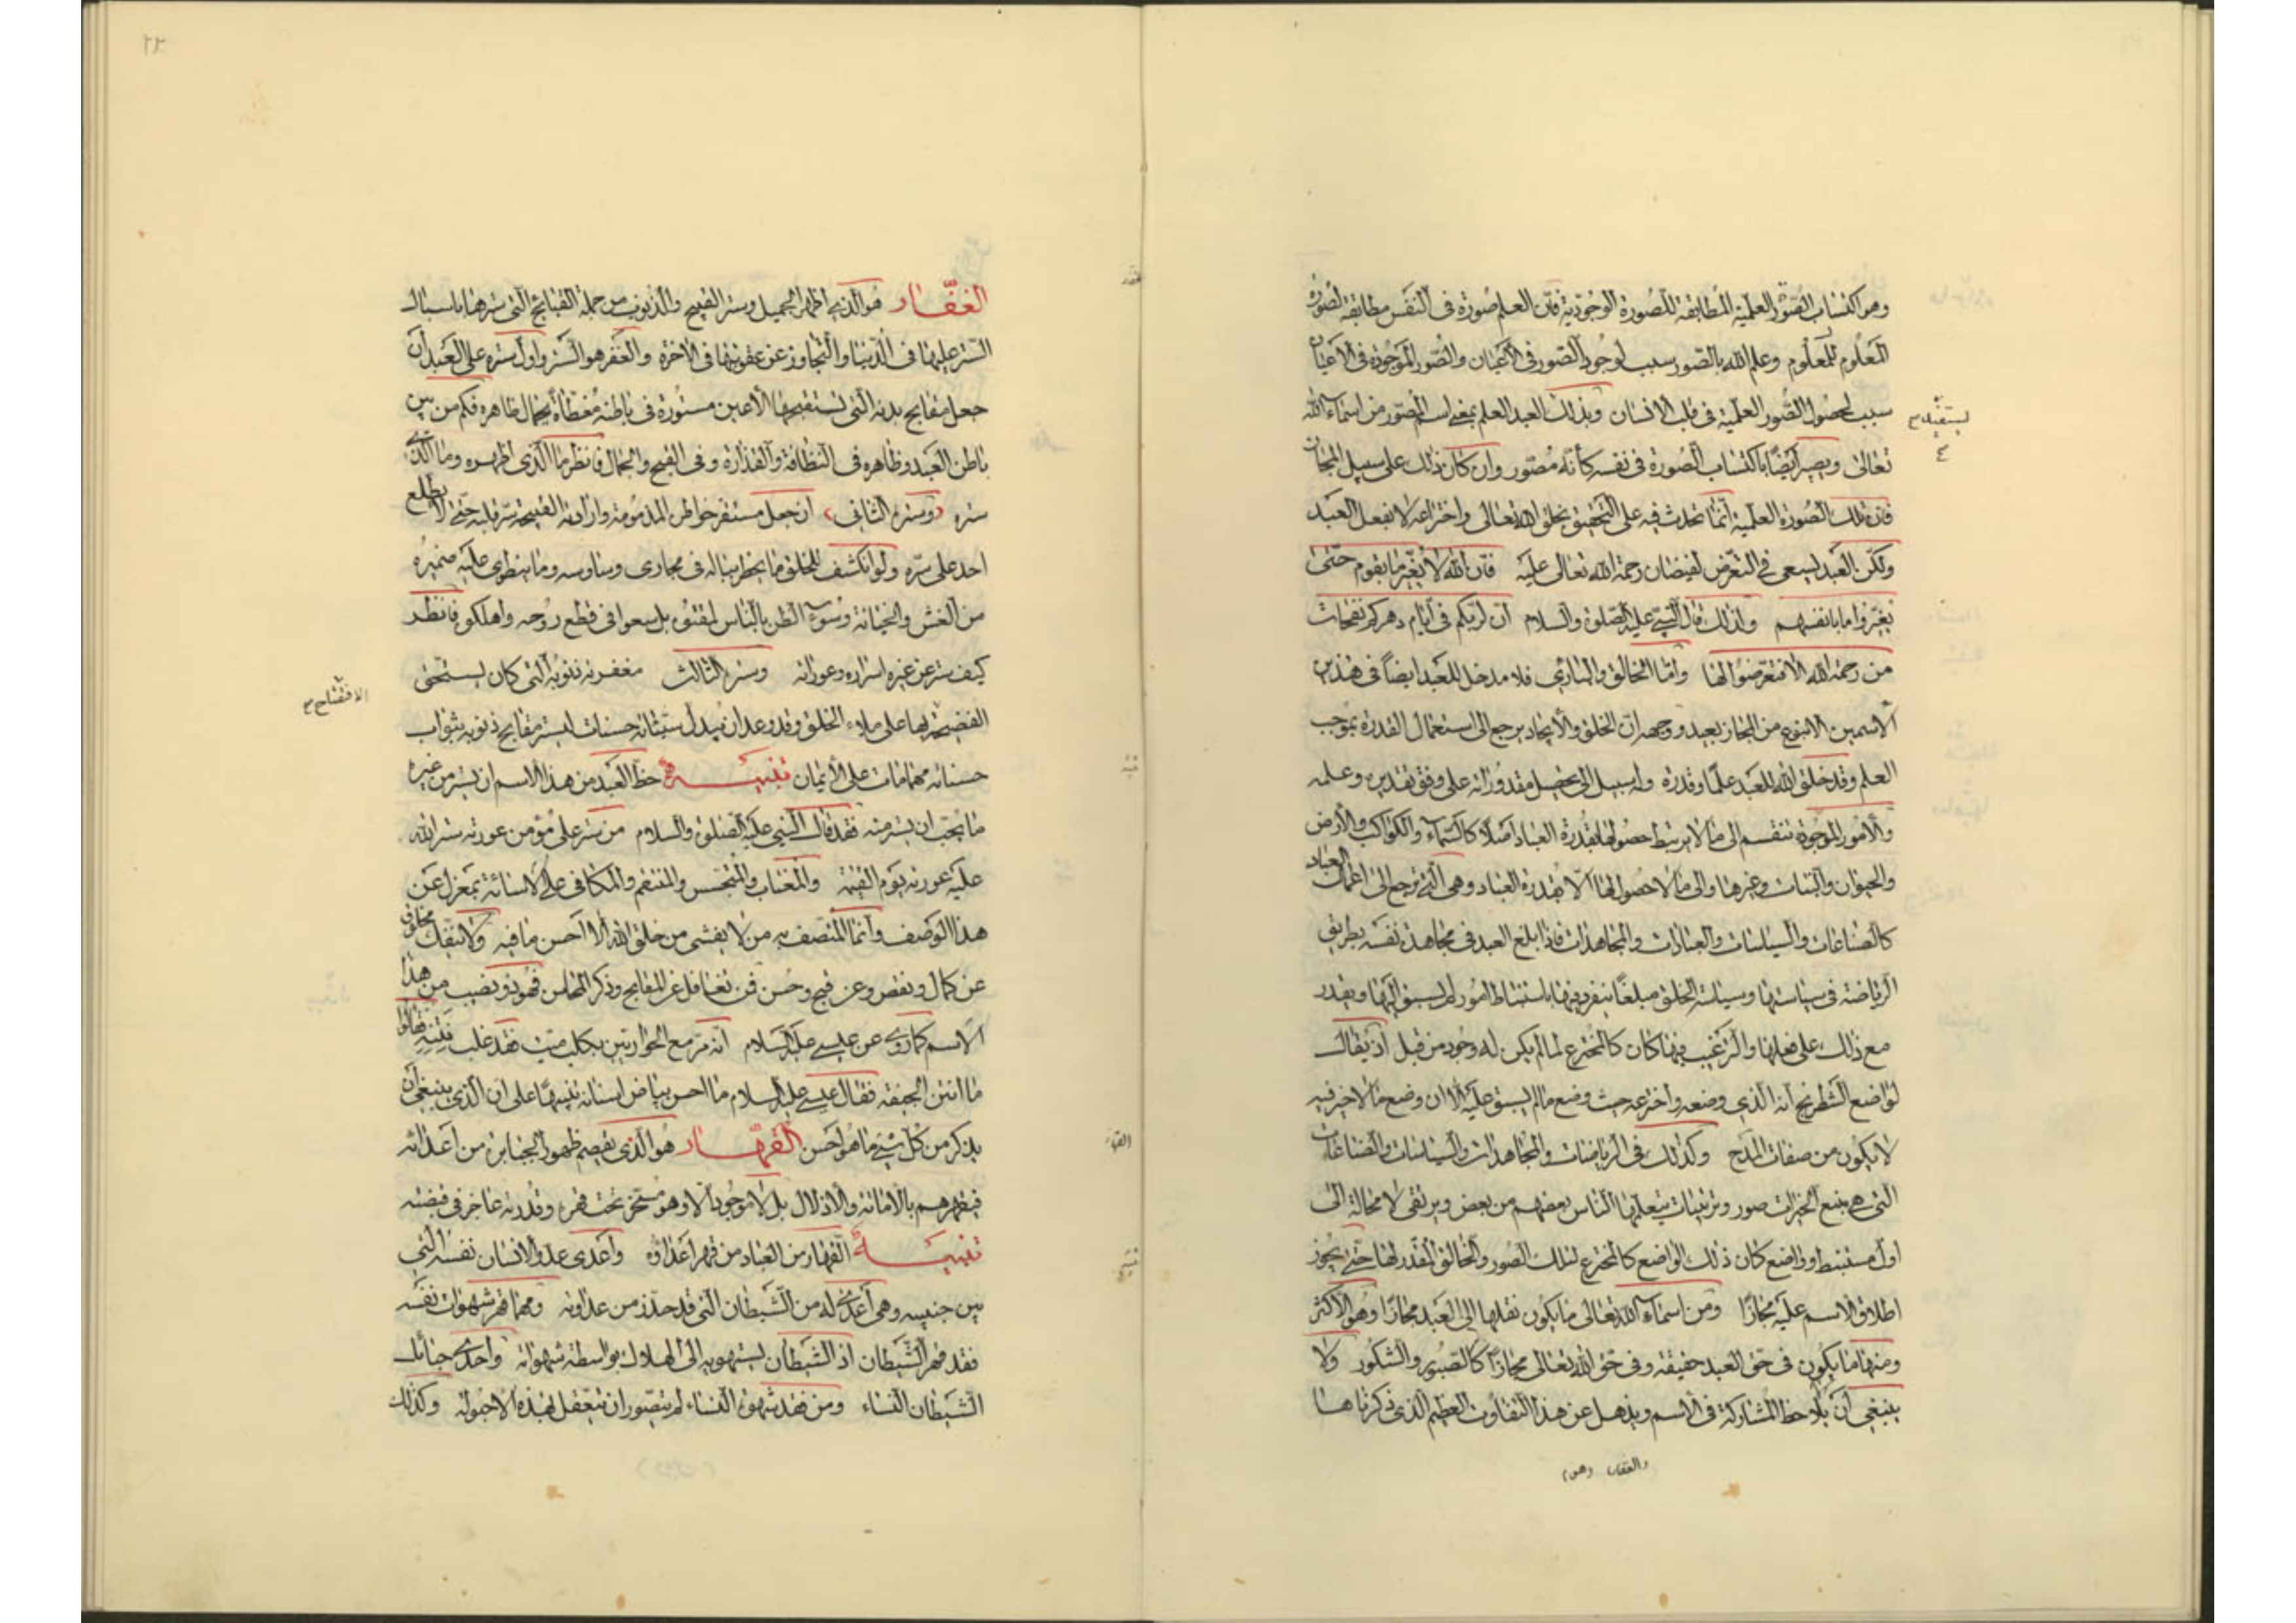 وهو اكتساب الصور العلمية المطابقة للصورة الوجودية فان العلم صورة فى النفس مطابقة لصورة
المعلوم للمعلوم وعلم الله بالصور سبب لوجود الصور فى الاعيان والصور الموجودة فى الاعيان
سبب لحصول الصور العلمية فى قلب الانسان وبذلك العبد العلم بمعنى اسم المصور من اسماء الله
يستفيد
تعالى ويصير ايضا باكتساب الصورة فى نفسه كأنه مصور وان كان ذلك على سبيل المجاز
فان تلك الصورة العلمية انما تحدث فيه على التحقيق بخلق الله تعالى واختراعه لا بفعل العبد
ولكن العبد يسعى فى التعرض لفيضان رحمة الله تعالى عليه فان الله لا يغير ما بقوم حتى
يغيروا ما بانفسهم ولذلك قال النبى عليه الصلوة والسلام ان لربكم فى ايام دهركم نفحات
من رحمة الله الا فتعرضوا لها واما الخالق والبارى فلا مدخل للعبد ايضا فى هذين
الاسمين الا بنوع من المجاز بعيد ووجهه ان الخلق والايجاد يرجع الى استعمال القدرة بموجب
العلم وقد خلق الله للعبد علما وقدرة وله سبيل الى تحصيل مقدوراته على وفق تقديره وعلمه
والامور الموجودة تنقسم الى ما لا يرتبط حصولها بقدرة العباد اصلا كالسماء والكواكب والارض
والحيوان والنبات وغيرها والى ما لا حصول لها الا بقدرة العباد وهى التى ترجع الى اعمال العباد
كالصناعات والسياسات والعبادات والمجاهدات فاذا بلغ العبد فى مجاهدة نفسه بطريق
الرياضة فى سياستها وسياسة الخلق مبلغا ينفرد فيها باستنباط امور لم يسبق اليها ويقدر
مع ذلك على فعلها والترغيب فيها كان كالمخترع لما لم يكن له وجود من قبل اذ يقال
لواضع الشطرنج انه الذى وضعه واخترعه حيث وضع ما لم يسبق عليه الا ان وضع ما لا خير فيه
لا يكون من صفات المدح وكذلك فى الرياضات والمجاهدات والسياسات والصناعات
التى هى منبع الخيرات صور وترتيبات يتعلمها الناس بعضهم من بعض ويرتقى لا محالة الى
اول مستنبط وواضع كان ذلك الواضع كالمخترع لتلك الصور والخالق المقدر لها حتى يجوز
اطلاق الاسم عليه مجازا ومن اسماء الله تعالى ما يكون نقلها الى العبد مجازا وهو الاكثر
ومنها ما يكون فى حق العبد حقيقة وفى حق الله تعالى مجازا كالصبور والشكور ولا
ينبغى ان يلاحظ المشاركة فى الاسم ويذهل عن هذا التفاوت العظيم الذى ذكرناها
٢٢
الغفار هو الذى اظهر الجميل وستر القبيح والذنوب من جملة القبايح التى سترها باسبال
الستر عليها فى الدنيا والتجاوز عن عقوبتها فى الاخرة والغفر هو الستر واول ستره على العبد ان
جعل مقابح بدنه التى تستقبحها الاعين مستورة فى باطنه مغطاة بجمال ظاهره فكم من بين
باطن العبد وظاهره فى النظافة والقذارة وفى القبح والجمال فانظر ما الذى اظهره وما الذى
ستره وستره الثانى ان جعل مستقر خواطره المذمومة وارادته القبيحة سر قلبه حتى لا يطلع
احد على سره ولو انكشف للخلق ما يخطر بباله فى مجارى وساوسه وما ينطوى عليه ضميره
من الغش والخيانة وسوء الظن بالناس لمقتوه بل سعوا فى قطع روحه واهلكوه فانظر
كيف ستر عن غيره اسراره وعوراته وستره الثالث مغفرته ذنوبه التى كان يستحق
الافتضاح
الفضيحة بها على ملاء الخلق وقد وعد ان يبدل سيئاته حسنات ليستر مقابح ذنوبه بثواب
حسناته مهما مات على الايمان تنبيه حظ العبد من هذا الاسم ان يستر من غيره
ما يجب ان يستر منه فقد قال النبى عليه الصلوة والسلام من ستر على مؤمن عورته ستر الله
عليه عورته يوم القيمة والمغتاب والمتجسس والمنتقم والمكافى على الاسائة بمعزل عن
هذا الوصف وانما المتصف به من لا يفشى من خلق الله الا احسن ما فيه ولا ينفك مخلوق
عن كمال ونقص وعن قبح وحسن فمن تغافل عن المقابح وذكر المحاسن فهو ذو نصيب من هذا
الاسم كما روى عن عيسى عليه السلام انه مر مع الحواريين بكلب ميت فقد غلب نتنه فقالوا
ما انتن الجيفة فقال عيسى عليه السلام ما احسن بياض اسنانه تنبيها على ان الذى ينبغى ان
يذكر من كل شيئ ما هو احسن القهار هو الذى يقصم ظهور الجبابرة من اعدائه
القهار
فيقهرهم بالاماتة والاذلال بل لا موجود الا وهو مسخر تحت قهره وقدرته عاجز فى قبضته
تنبيه القهار من العباد من قهر اعداؤه واعدى عدو الانسان نفسه التى
بين جنبيه وهى اعدى له من الشيطان التى قد حذر من عداوته ومهما قهر شهوات نفسه
فقد قهر الشيطان اذ الشيطان يستهويه الى الهلاك بواسطة شهواته واحدى حبائل
الشيطان النساء ومن فقد شهوة النساء لم يتصور ان يتعقل بهذه الاحبولة وكذلك